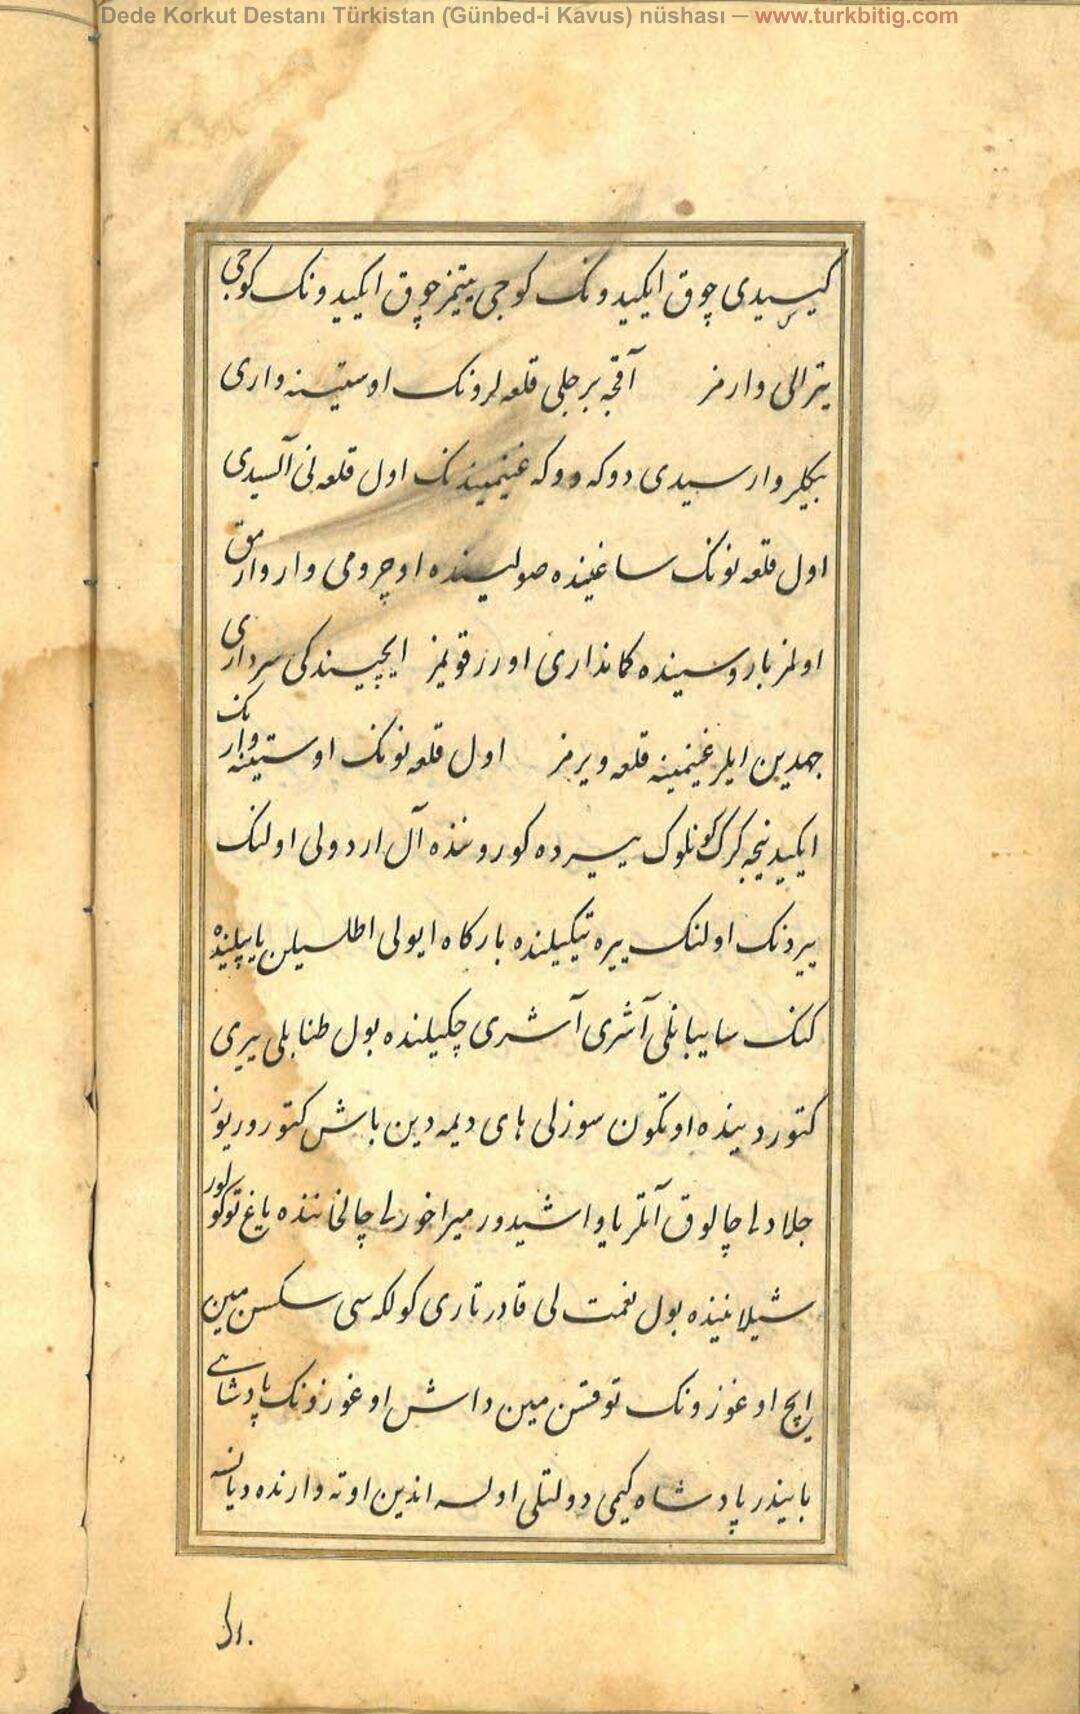 Dede Korkut Destanı Türkistan (Günbed-i Kavus) nüshası — www.turkbitig.com
کیسیدی چوق ایکیدونک کوجی یتیمز چوق ایکیدونک کوجی
یترالی وارمز آقجه برجلی قلعه لرونک اوستینه واری
بیکلر وارسیدی دوکه دوکه غنیمیندنک اول قلعه نی آلسیدی
اول قلعه نونک ساغینده صولینده اوچرومی وار وارمق
اولمز باروسینده کمانداری اورر قویمز ایچیسیندکی سرداری
جهدین ایلر غنیمینه قلعه ویرمز اول قلعه نونک اوستینه وارنک
ایکیدینچه کرک کونلوک ییرده کوروننده آل اردولی اولنک
ییردنک اولنک ییره تیکیلنده بارکاه ایولی اطلسیلن یاپیلینده
کنک سایبانلی آشری آشری چکیلنده بول طنابلی ییری
کتوردینده اوتکون سوزلی های دیمه دین باش کتورور یوز
جلادلی چالوق آتلر یاواشیدور میراخورلی چالخاننده یاغ توکولور
شیلاغنیده بول نعمت لی قادر تاری کولکه سی سکسن مین
ایچ اوغوزونک توقسن مین داش اوغوزونک پادشاهی
بایندر پادشاه کیمی دولتلی اولسه اندین اوته وارنده دیانسه